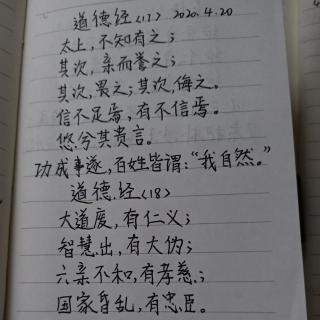 道德经(17) 2020.4.20
太上,不知有之;
其次,亲而誉之;
其次,畏之;其次,侮之。
信不足焉,有不信焉。
悠兮其贵言。
功成事遂,百姓皆谓:“我自然。”
道德.经(18)
大道废,有仁义;
智慧出,有大伪;
六亲不和,有孝慈;
国家昏乱,有忠臣。